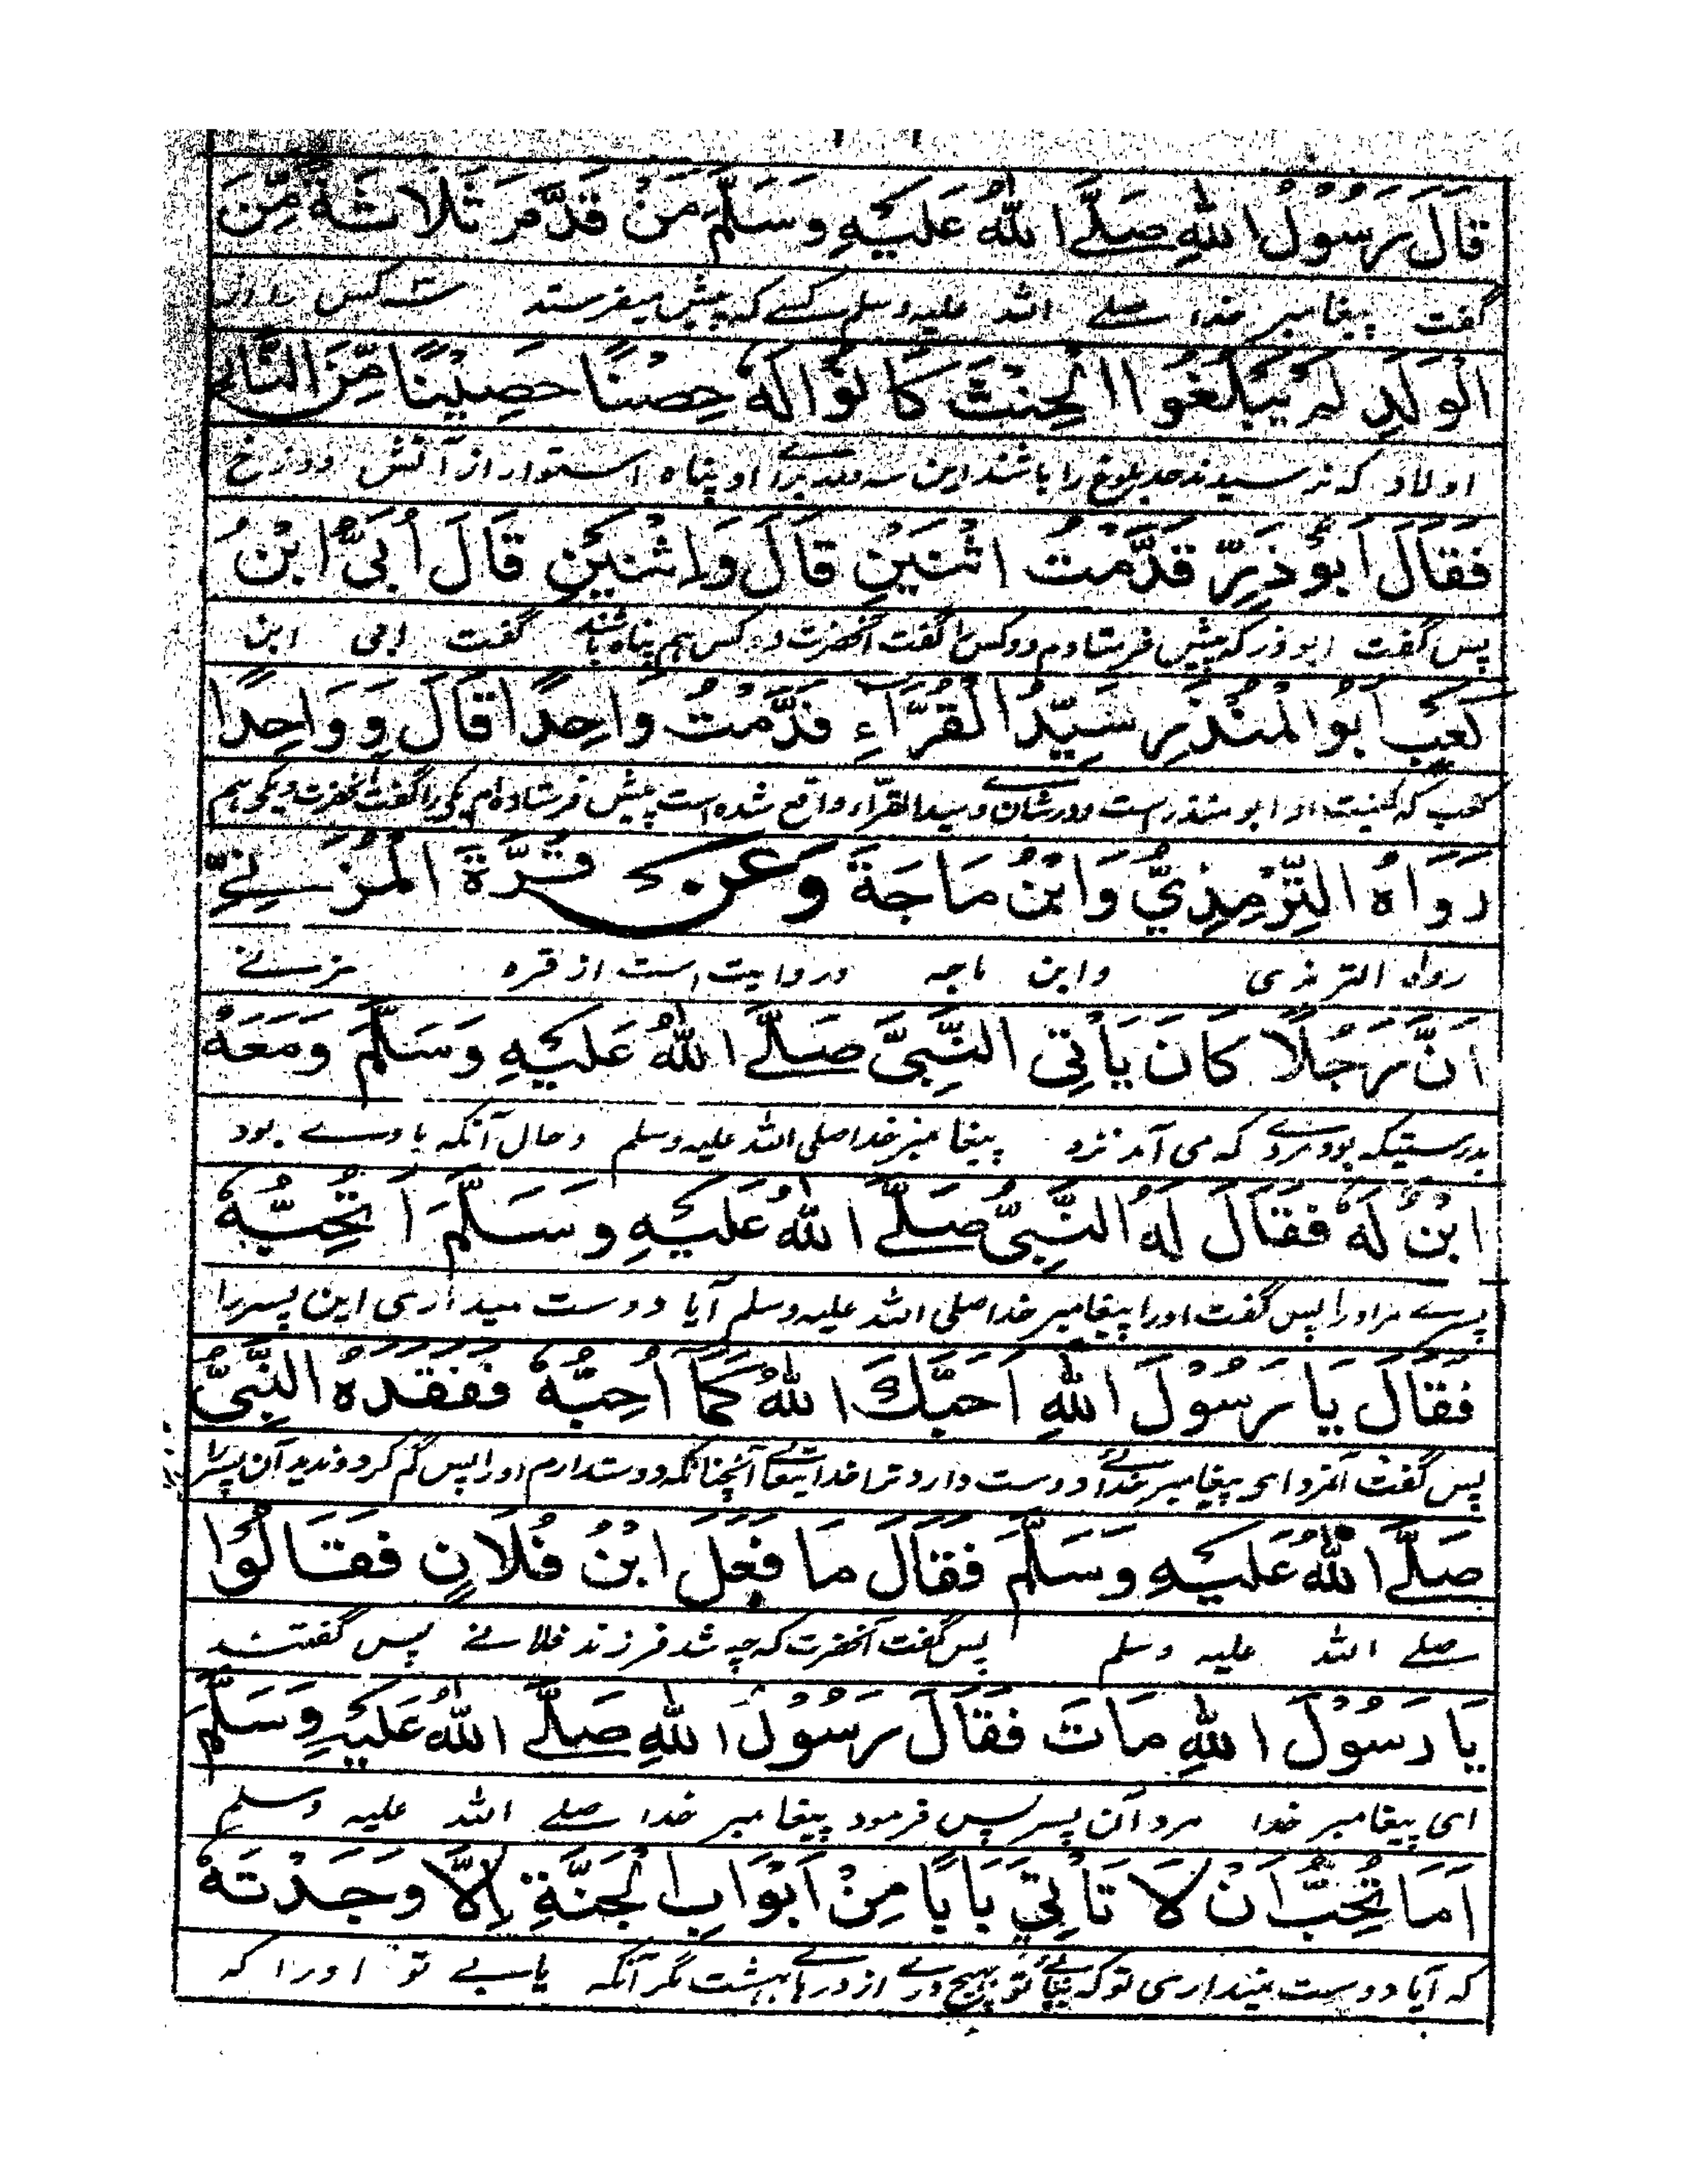 قَالَ رَسُوْلُ اللهِ صَلَّے اللهُ عَلَيْهِ وَسَلَّمَ مَنْ قَدَّمَ ثَلَاثَةً مِّنَ
گفت پیغامبر خدا صلے اللہ علیہ وسلم کسے کہ پیش میفرستد سہ کس را از
الْوَلَدِ لَمْ يَبْلُغُوا الْحِنْثَ كَانُوْا لَهٗ حِصْنًا حَصِيْنًا مِّنَ النَّارِ
اولاد کہ نرسیدند حد بلوغ را باشند این سہ ولد برائے او پناہ استوار از آتش دوزخ
فَقَالَ اَبُوْ ذَرٍّ قَدَّمْتُ اثْنَيْنِ قَالَ وَاثْنَيْنِ قَالَ اُبَیُّ ابْنُ
پس گفت ابوذر کہ پیش فرستادم دو کس را گفت آنحضرت دو کس ہم پناہ باشند گفت ابی ابن
كَعْبٍ اَبُو الْمُنْذِرِ سَيِّدُ الْقُرَّاءِ قَدَّمْتُ وَاحِدًا قَالَ وَوَاحِدًا
کعب کہ کنیت او ابو منذرست و در شان وے سید القرّاء واقع شدہ است پیش فرستادہ ام یکی را گفت آنحضرت و یکی ہم
رَوَاهُ التِّرْمِذِيُّ وَابْنُ مَاجَةَ وَعَنْ قُرَّةَ الْمُزَنِےِّ
رواہ الترمذی وابن ماجہ و روایت است از قرہ مزنے
اَنَّ رَجُلًا كَانَ يَأْتِی النَّبِیَّ صَلَّے اللهُ عَلَيْهِ وَسَلَّمَ وَمَعَهٗ
بدرستیکہ بود مردے کہ می آمد نزد پیغامبر خدا صلی اللہ علیہ وسلم و حال آنکہ با وے بود
ابْنٌ لَهٗ فَقَالَ لَهُ النَّبِیُّ صَلَّے اللهُ عَلَيْهِ وَسَلَّمَ اَتُحِبُّهٗ
پسرے مر او را پس گفت او را پیغامبر خدا صلی اللہ علیہ وسلم آیا دوست میداری این پسر را
فَقَالَ يَا رَسُوْلَ اللهِ اَحَبَّكَ اللهُ كَمَا اُحِبُّهٗ فَفَقَدَهُ النَّبِیُّ
پس گفت آنمرد ای پیغامبر خدائے دوست دارد ترا خدا تعالے آنچنانکہ دوستدارم او را پس گم کرد و ندید آن پسر را
صَلَّے اللهُ عَلَيْهِ وَسَلَّمَ فَقَالَ مَا فَعَلَ ابْنُ فُلَانٍ فَقَالُوْا
صلے اللہ علیہ وسلم پس گفت آنحضرت کہ چہ شد فرزند فلانے پس گفتند
يَا رَسُوْلَ اللهِ مَاتَ فَقَالَ رَسُوْلُ اللهِ صَلَّے اللهُ عَلَيْهِ وَسَلَّمَ
ای پیغامبر خدا مرد آن پسر پس فرمود پیغامبر خدا صلے اللہ علیہ وسلم
اَمَا تُحِبُّ اَنْ لَا تَأْتِیَ بَابًا مِنْ اَبْوَابِ الْجَنَّةِ اِلَّا وَجَدْتَهٗ
کہ آیا دوست نمیداری تو کہ نیائے تو ہیچ درے از درہائے بہشت مگر آنکہ یابے تو اورا کہ